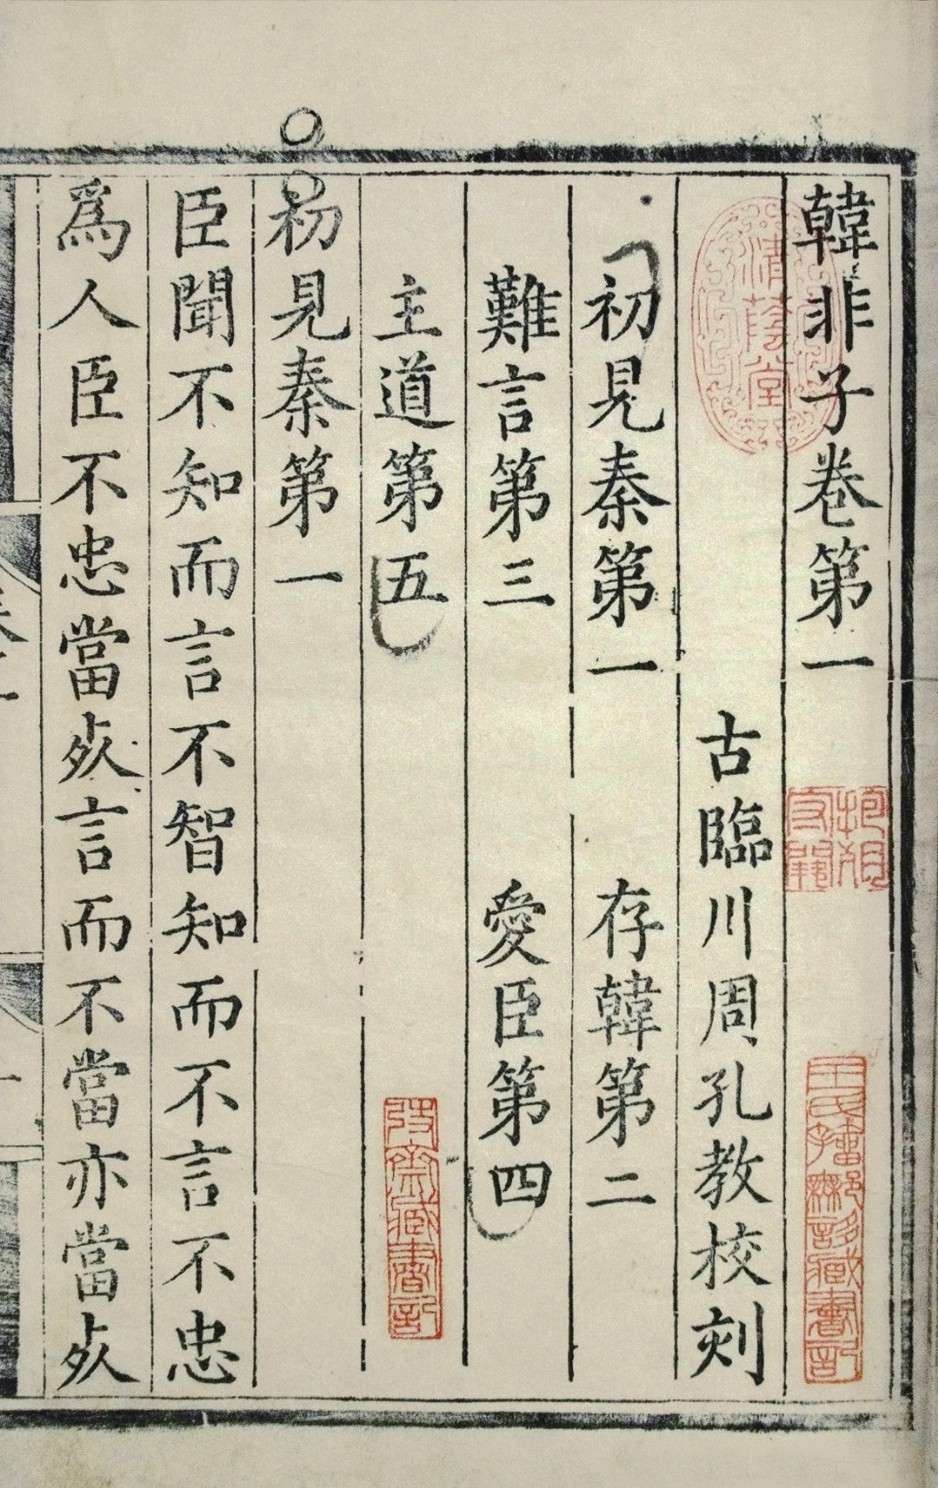 韓非子卷第一
古臨川周孔教校刻
初見秦第一　存韓第二
難言第三　愛臣第四
主道第五
初見秦第一
臣聞不知而言不智知而不言不忠
爲人臣不忠當㱁言而不當亦當㱁
清蔭堂
弢齋藏書記